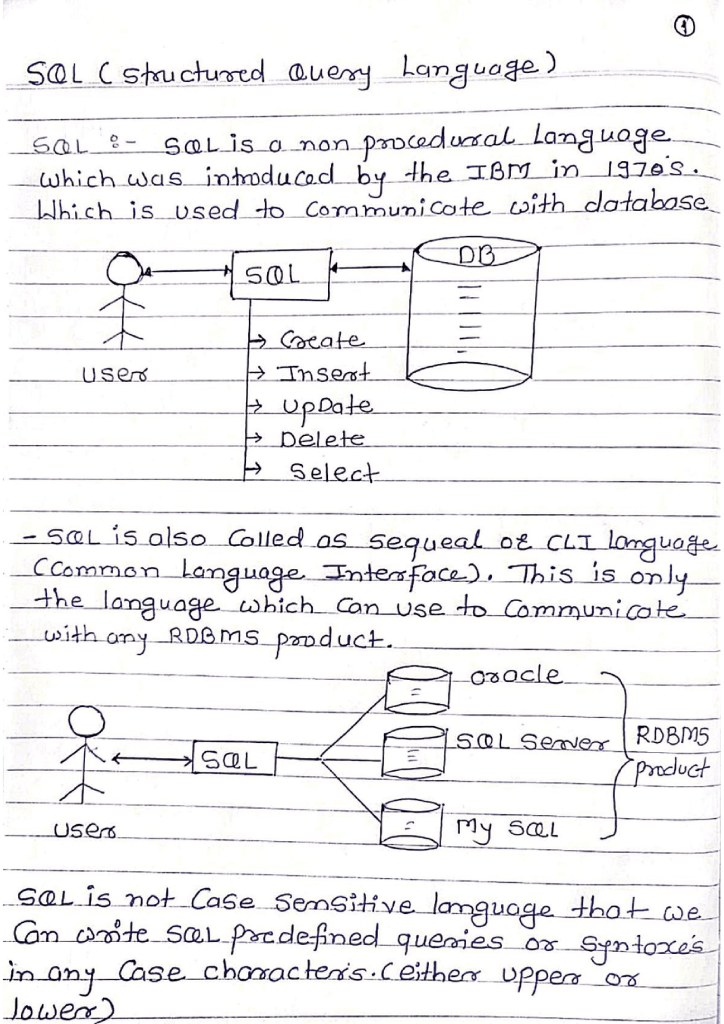 1
SQL (structured Query Language)
SQL :- SQL is a non procedural Language
which was introduced by the IBM in 1970's.
Which is used to Communicate with database
SQL
DB
user
→ Create
→ Insert
→ UpDate
→ Delete
→ Select
- SQL is also Called as sequeal or CLI language
(Common Language Interface). This is only
the language which can use to Communicate
with any RDBMS product.
oracle
SQL Server
RDBMS
product
SQL
user
My SQL
SQL is not Case Sensitive language that we
Can write SQL predefined queries or Syntaxe's
in any Case character's. (either upper or
lower)